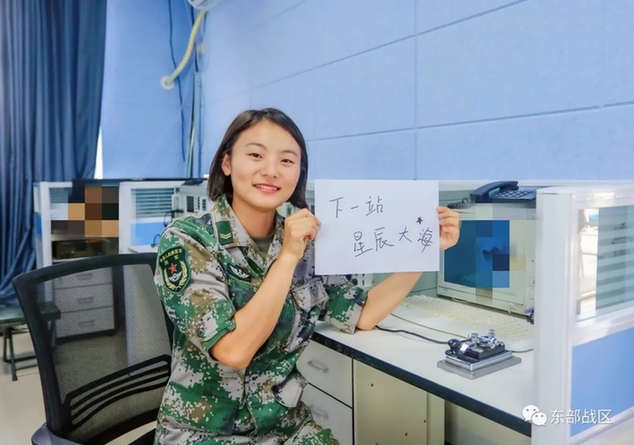 下一站
星辰大海
东部战区